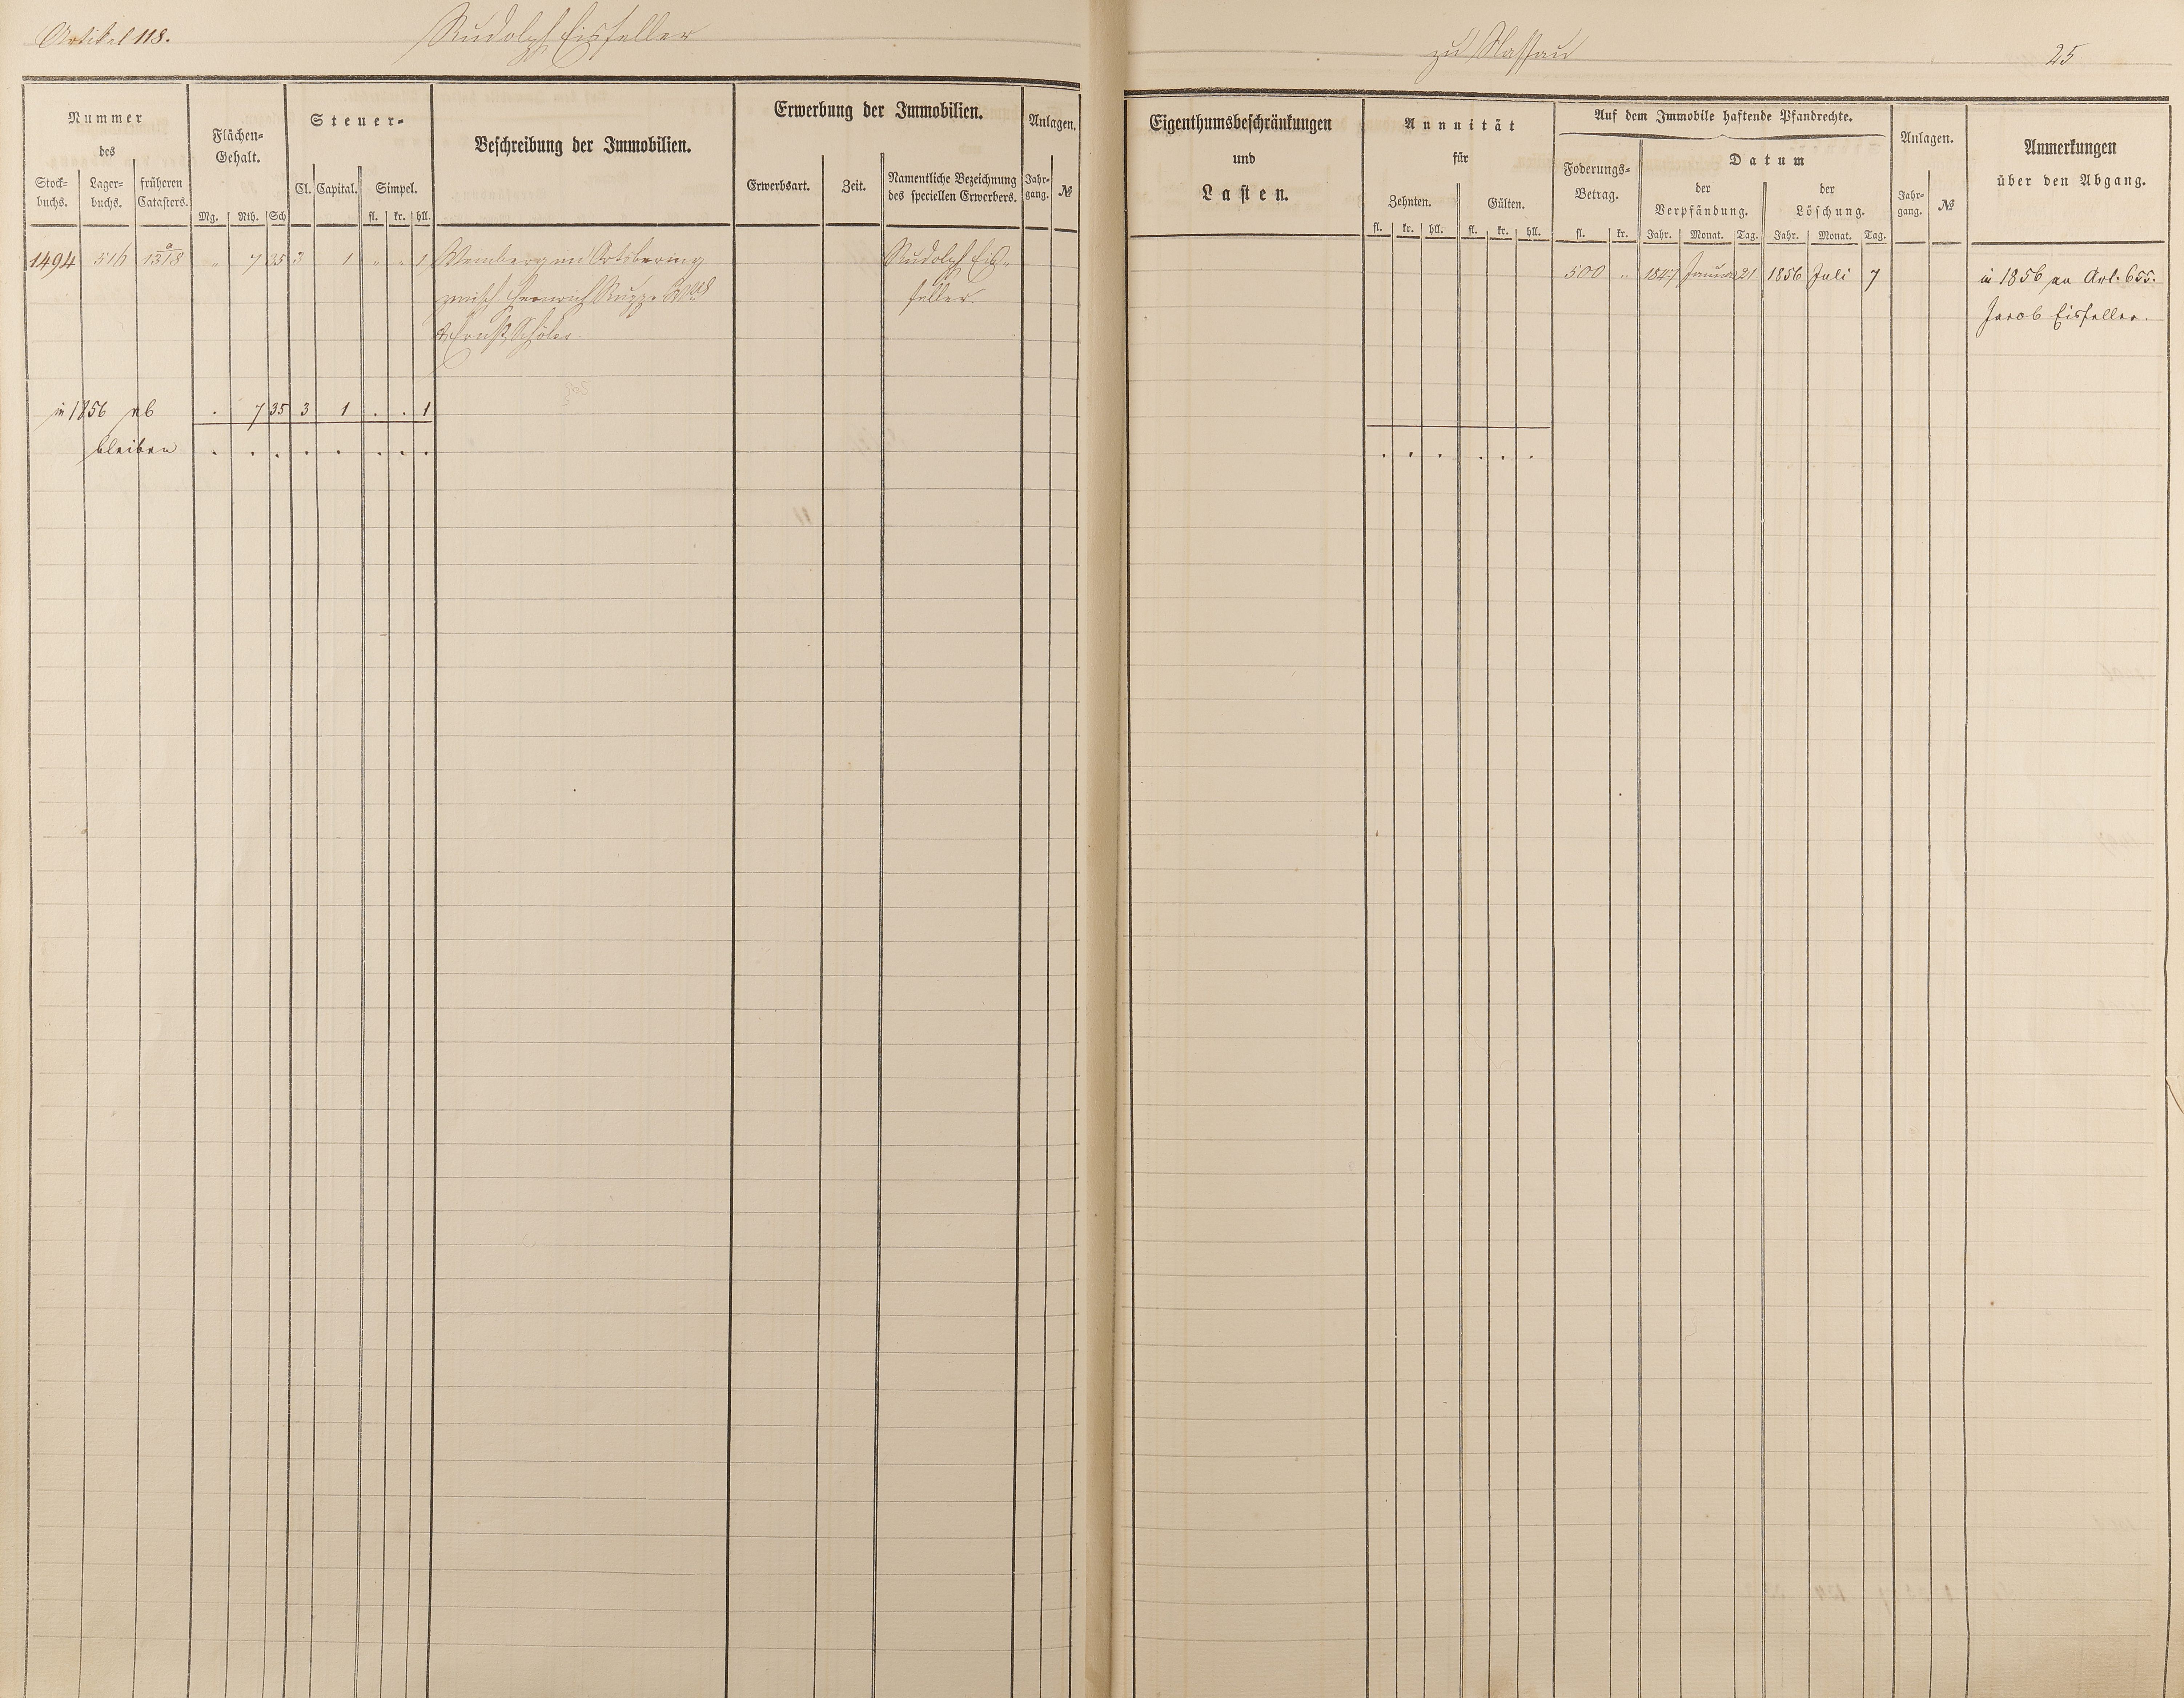 Artikel 118.
Rudolph Eisfeller
zu Nassau
25
Nummer
des
Stock-
buchs.
Lager-
buchs.
früheren
Catasters.
Flächen-
Gehalt.
Mg. Rth. Sch
Steuer-
Cl. Capital. Simpel.
fl. kr. hll.
Beschreibung der Immobilien.
Erwerbung der Immobilien.
Erwerbsart. Zeit.
Namentliche Bezeichnung
des speciellen Erwerbers.
Anlagen.
Jahr-
gang.
№
Eigenthumsbeschränkungen
und
Lasten.
Annuität
für
Zehnten. Gülten.
fl. kr. hll. fl. kr. hll.
Auf dem Immobile haftende Pfandrechte.
Foderungs-
Betrag.
fl. kr.
Datum
der
Verpfändung.
Jahr. Monat. Tag.
der
Löschung.
Jahr. Monat. Tag.
Anlagen.
Jahr-
gang.
№
Anmerkungen
über den Abgang.
1494 516 a/1318 " 7 35 3 1 " " 1 Weinberg im Ortsbering Rudolph Eis-
zwisch. Heinrich Ruppe feller
& Ernst Schöler.
500 " 1847 Januar 21 1856 Juli 7 in 1856 an Art. 655.
Jacob Eisfeller.
in 1856 ab . 7 35 3 1 . . 1
bleiben . . . . . . . .
. . . . . .